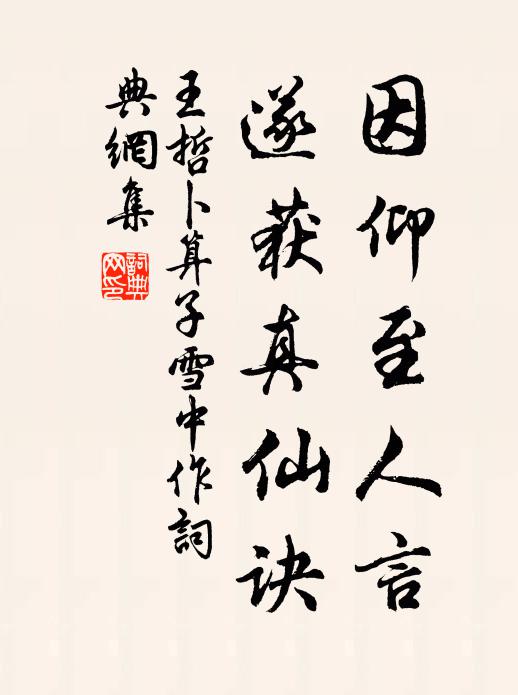 因仰至人言
遂获真仙诀
王哲卜算子雪中作詞
典網集
詞典网印